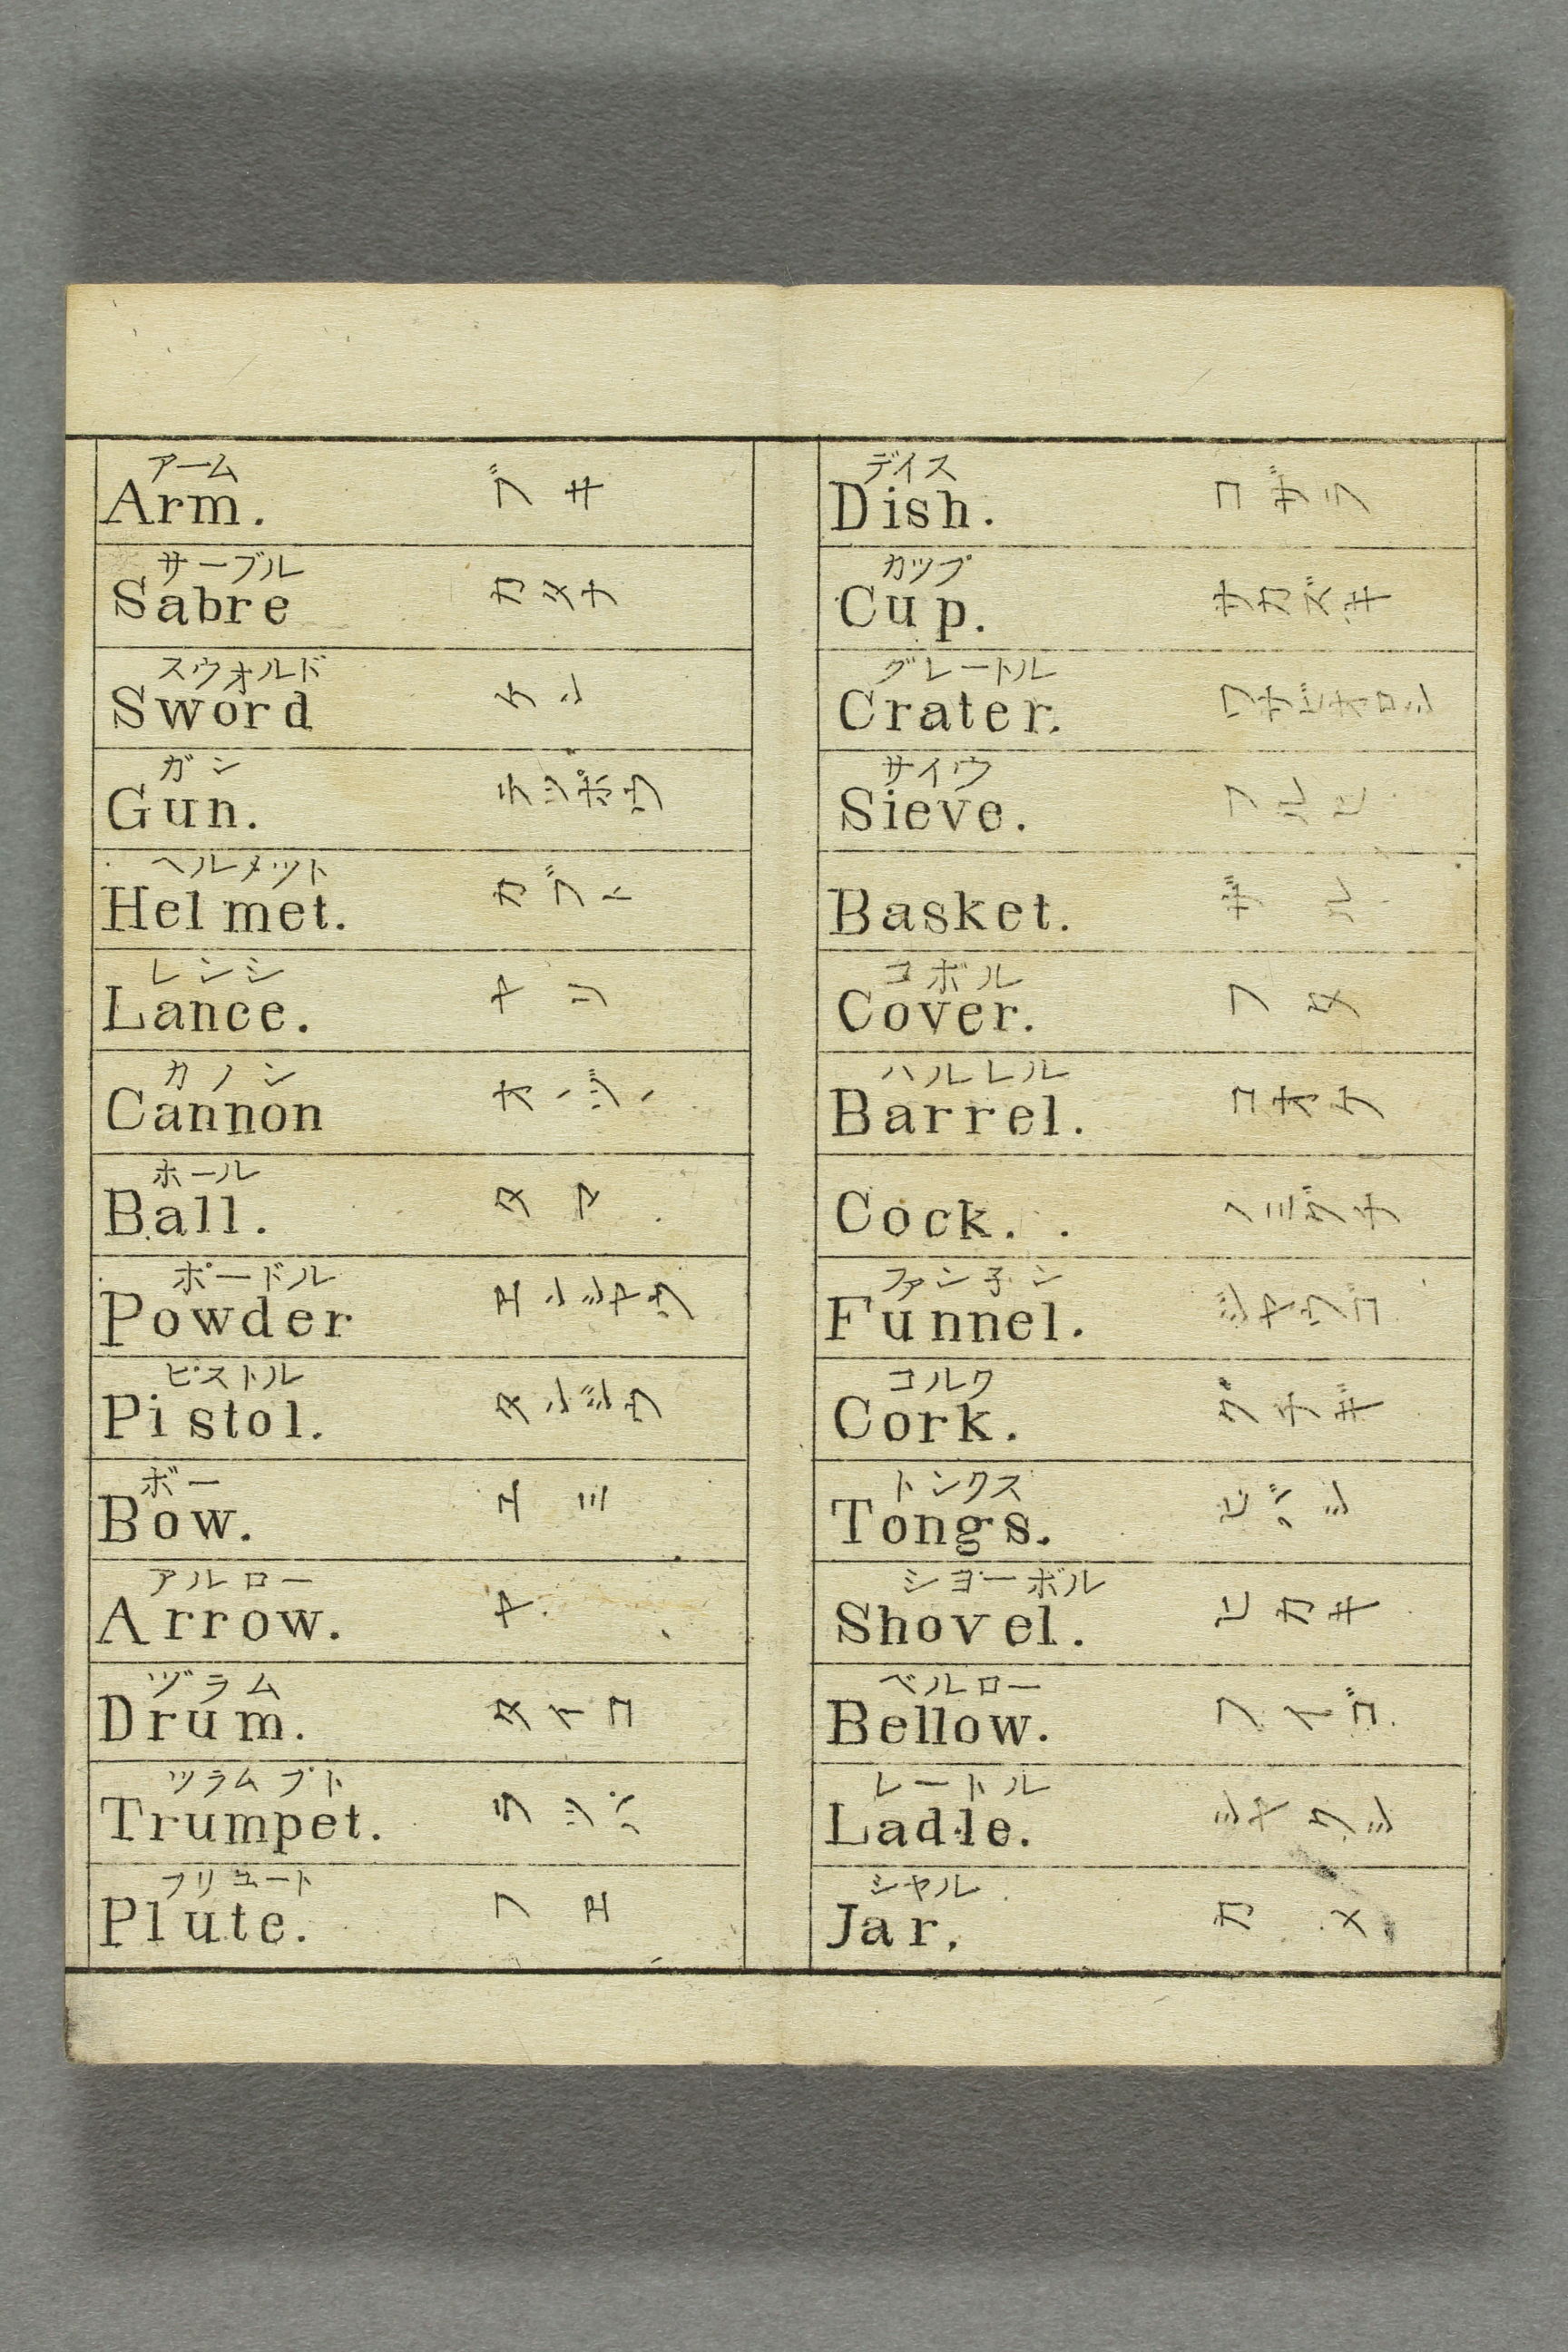 アーム
Arm. ブキ
サーブル
Sabre カタナ
スウォルド
Sword ケン
ガン
Gun. テツポウ
ヘルメツト
Helmet. カブト
レンシ
Lance. ヤリ
カノン
Cannon
ホール
Ball. タマ
ポードル
Powder エンシヤウ
ピストル
Pistol. タンジウ
ボー
Bow. ユミ
アルロー
Arrow. ヤ
ヅラム
Drum. タイコ
ツラムプト
Trumpet. ラツパ
フリユート
Plute. フエ
デイス
Dish. コザラ
カツプ
Cup. サカズキ
グレートル
Crater.
サイウ
Sieve. フルヒ
Basket. ザル
コボル
Cover. フタ
ハルレル
Barrel.
Cock.
ファン子ン
Funnel. ジヤウゴ
コルク
Cork.
トンクス
Tongs. ヒバシ
シヨーボル
Shovel. ヒカキ
ベルロー
Bellow. フイゴ
レートル
Ladle. シヤクシ
シヤル
Jar. カメ